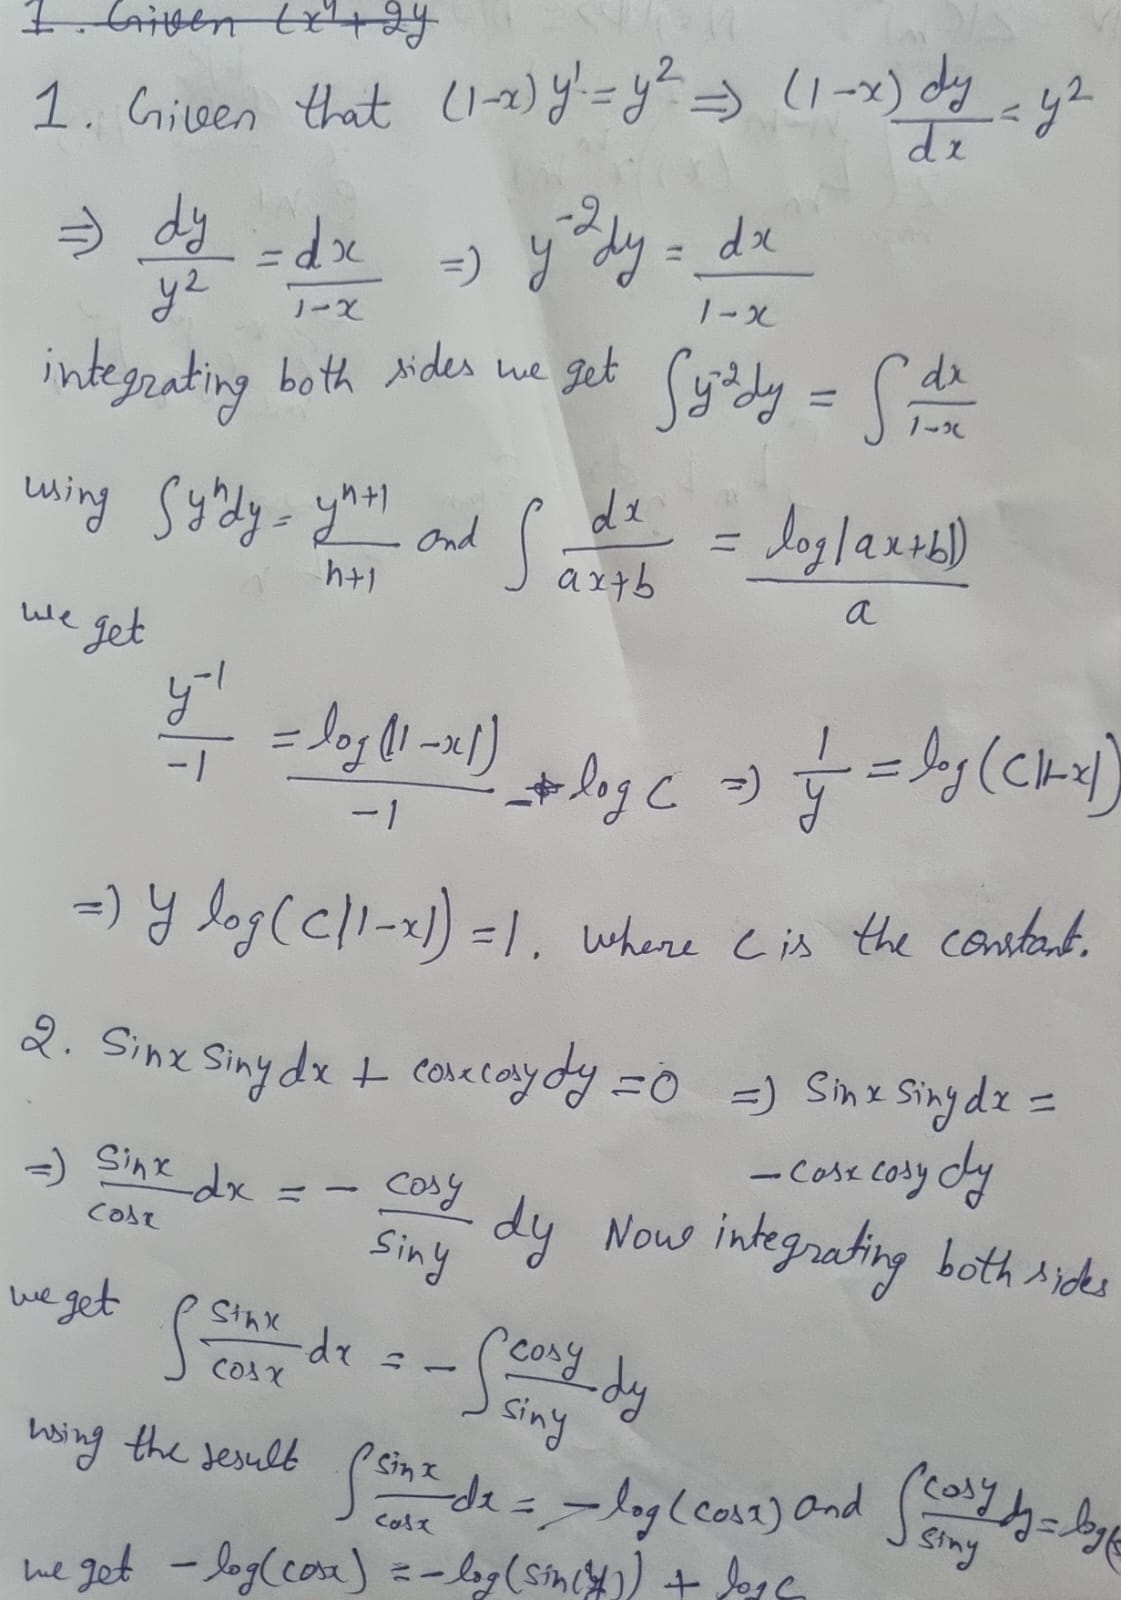 1. Given (x⁴+2y
1. Given that (1-x)y' = y² ⇒ (1-x) dy/dx = y²
⇒ dy/y² = dx/1-x ⇒ y⁻²dy = dx/1-x
integrating both sides we get ∫y⁻²dy = ∫dx/1-x
using ∫yⁿdy = yⁿ⁺¹/n+1 and ∫ dx/ax+b = log|ax+b|)/a
we get
y⁻¹/-1 = log(|1-x|)/-1 - log c ⇒ 1/y = log(C|1-x|)
⇒ y log(C|1-x|) = 1. where c is the constant.
2. Sinx Siny dx + cosx cosy dy = 0 ⇒ Sinx Siny dx =
- cosx cosy dy
⇒ Sinx/cosx dx = - cosy/Siny dy Now integrating both sides
we get ∫ Sinx/cosx dx = - ∫ cosy/siny dy
using the result ∫ sinx/cosx dx = - log(cosx) and ∫ cosy/siny dy = log(
we get - log(cosx) = - log(sin(y)) + log c